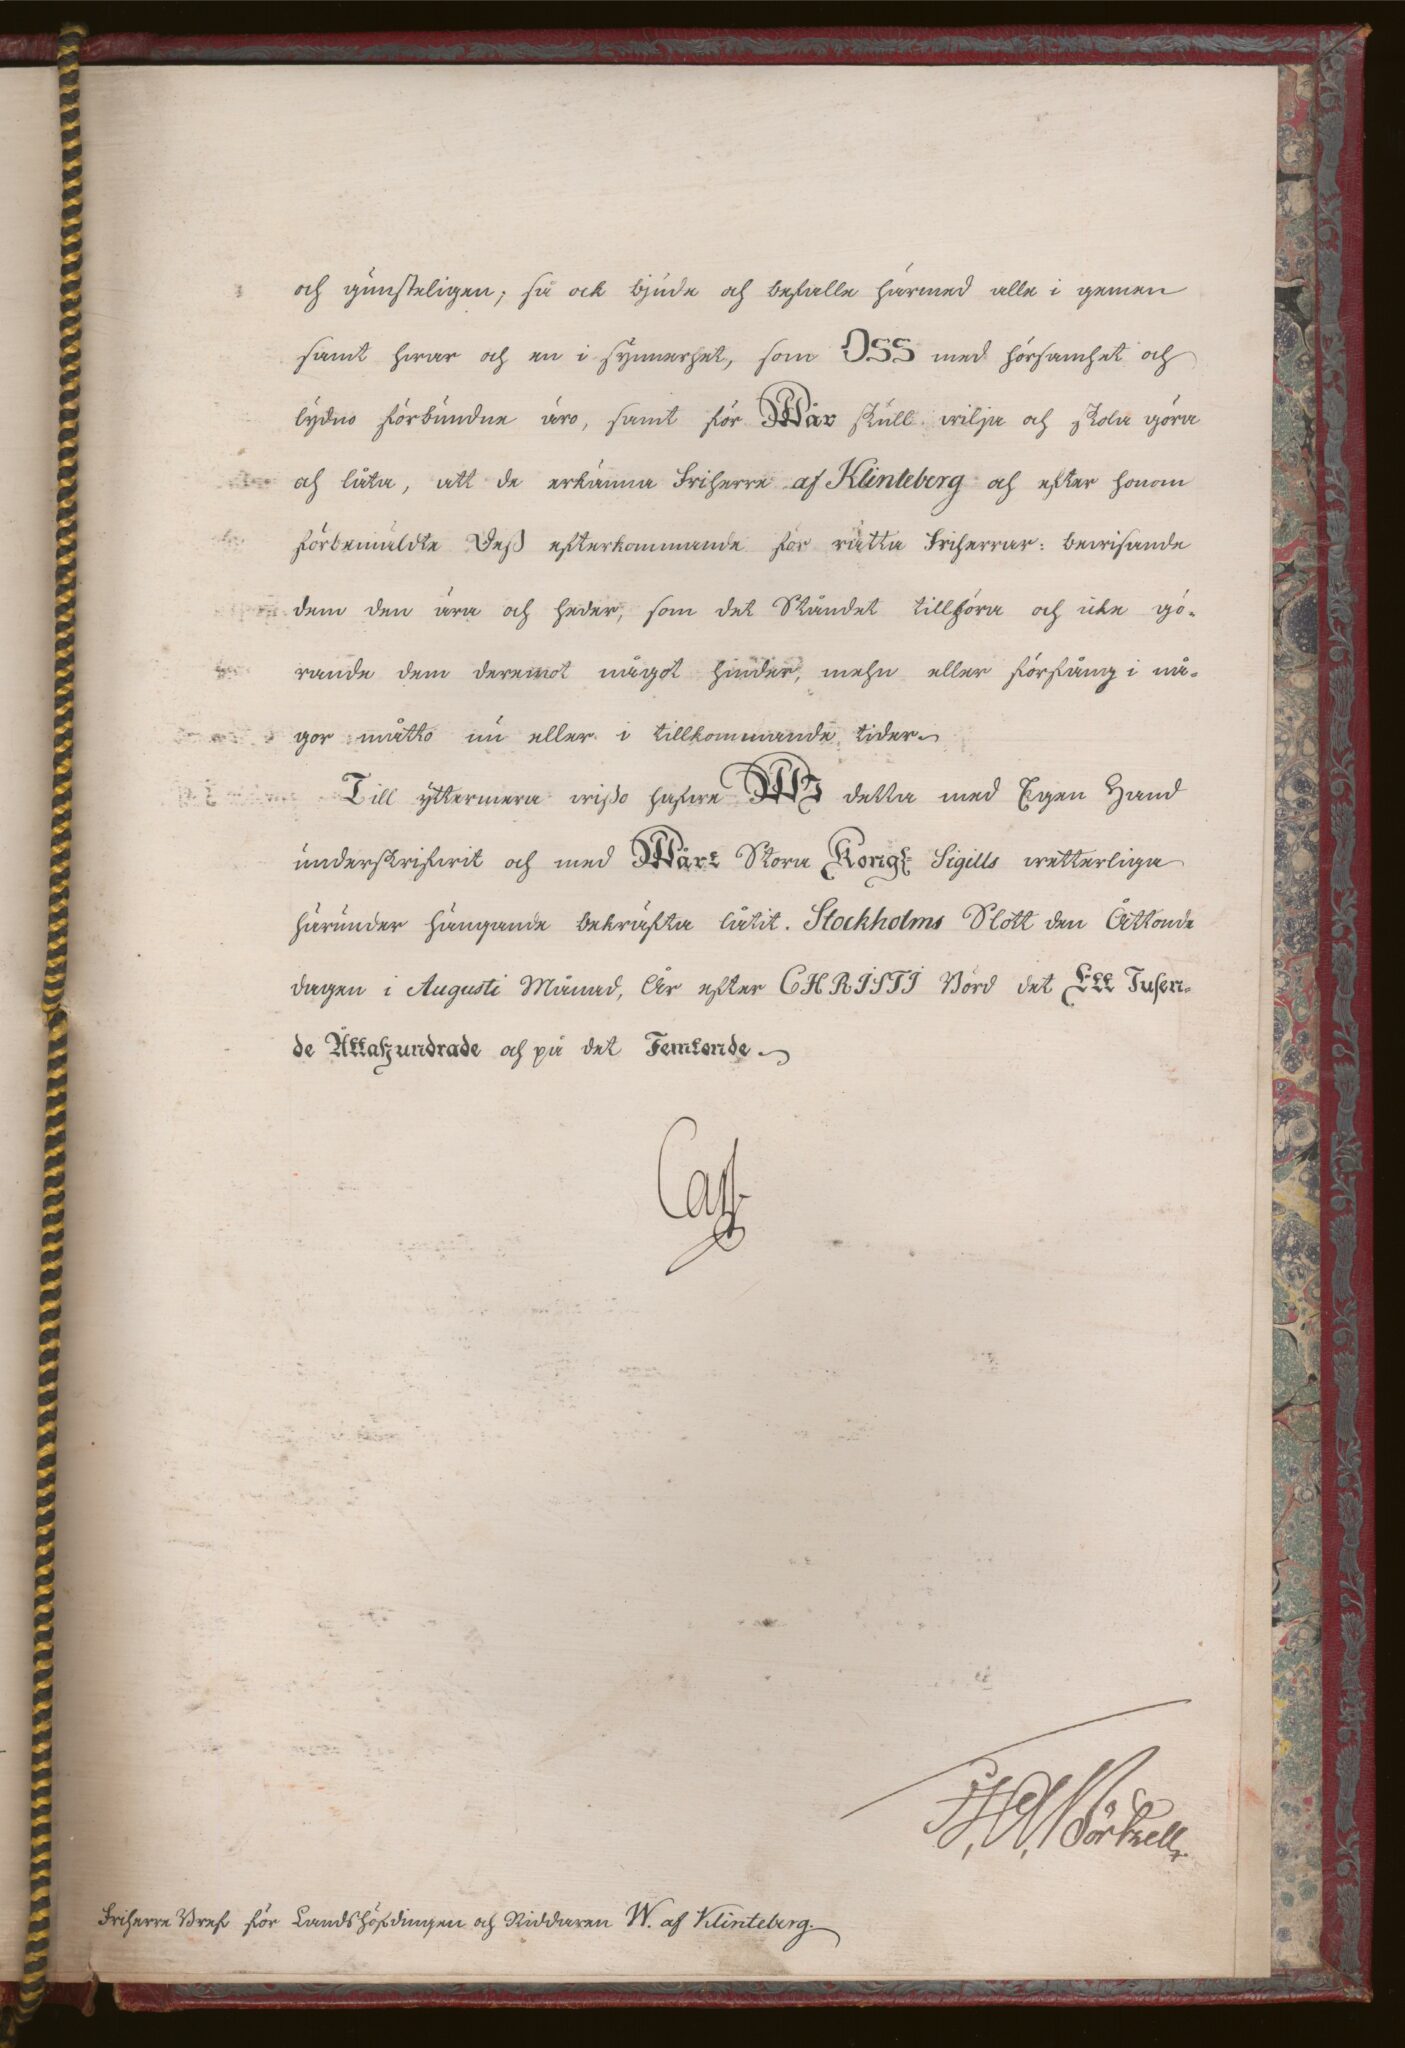 och gunsteligen; så ock bjude och befalle härmed alle i gemen
samt hvar och en i synnerhet, som OSS med hörsamhet och
lydno förbundne äro, samt för Wår skull wilja och skola göra
och låta, att de erkänna Friherre af Klinteberg och efter honom
förbemäldte Deß efterkommande för rätta Friherrar: bewisande
dem den ära och heder, som det Ståndet tillhöra och icke gö-
rande dem deremot något hinder, mehn eller förfång i nå-
gor måtto nu eller i tillkommande tider.
Till yttermera wißo hafwe WJ detta med Egen Hand
underskrifwit och med Wårt Stora Kongl Sigills wetterliga
härunder hängande bekräfta låtit. Stockholms Slott den Åttonde
dagen i Augusti Månad, År efter CHRISTI Börd det Ett Tusen-
de Åttahundrade och på det Femtonde.
Carl
Friherre Bref för Landshöfdingen och Riddaren W. af Klinteberg.